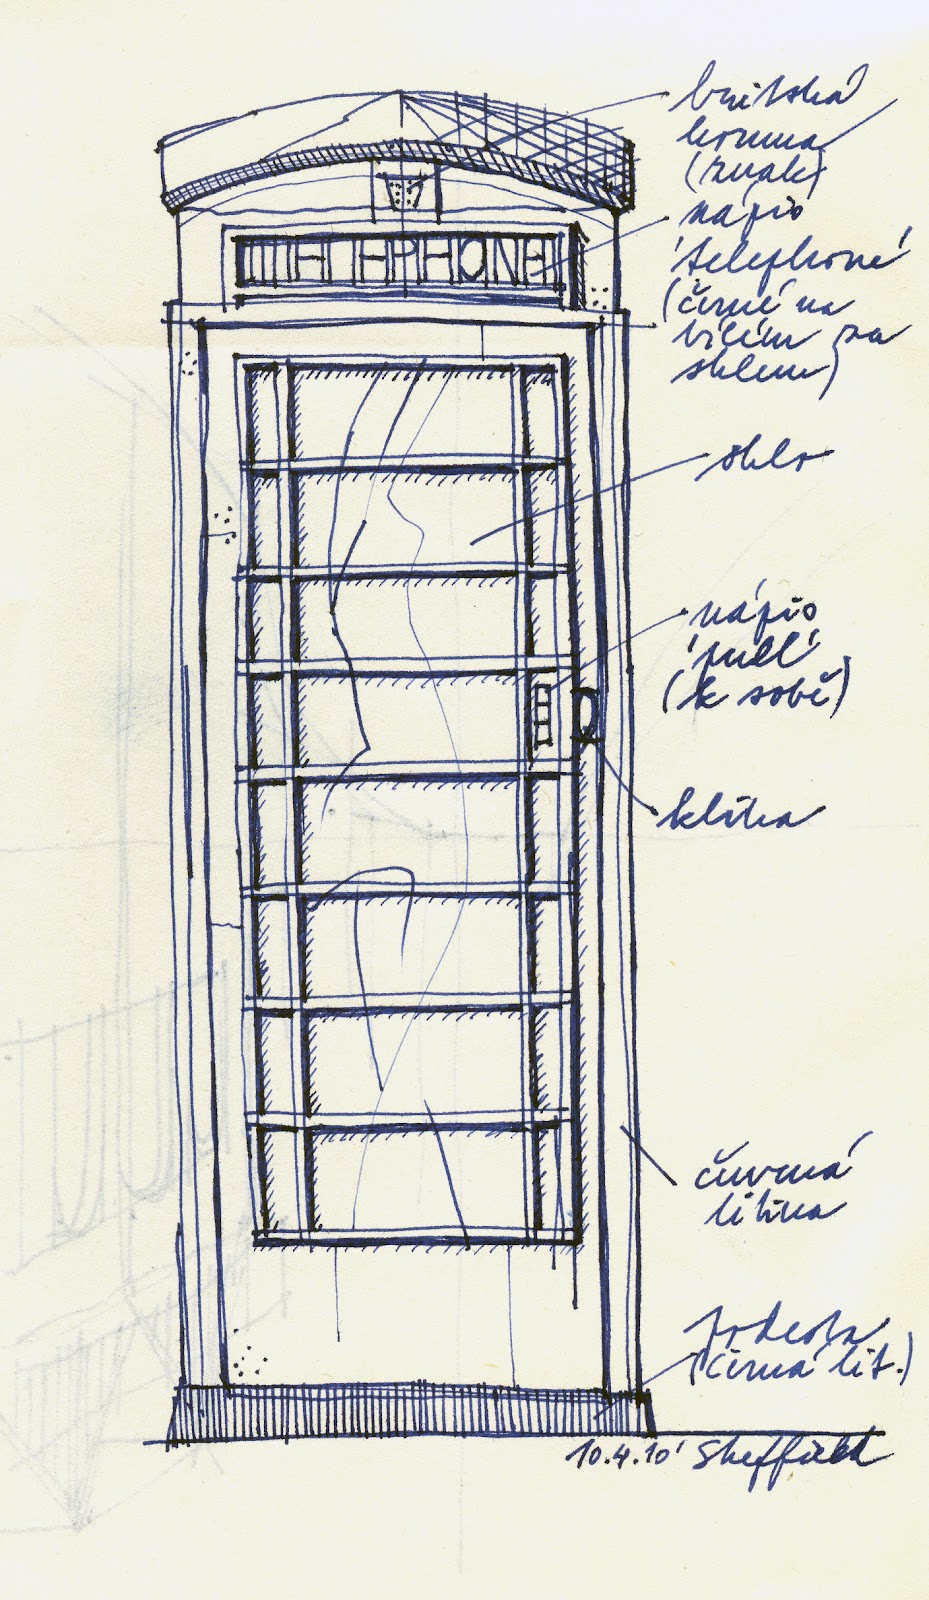 britská
koruna
(znak)
nápis
'telephone'
(černé na
bílém za
sklem)
sklo
nápis
'pull'
(k sobě)
klika
červená
litina
podesta
(černá lit.)
10.4.10' Sheffield